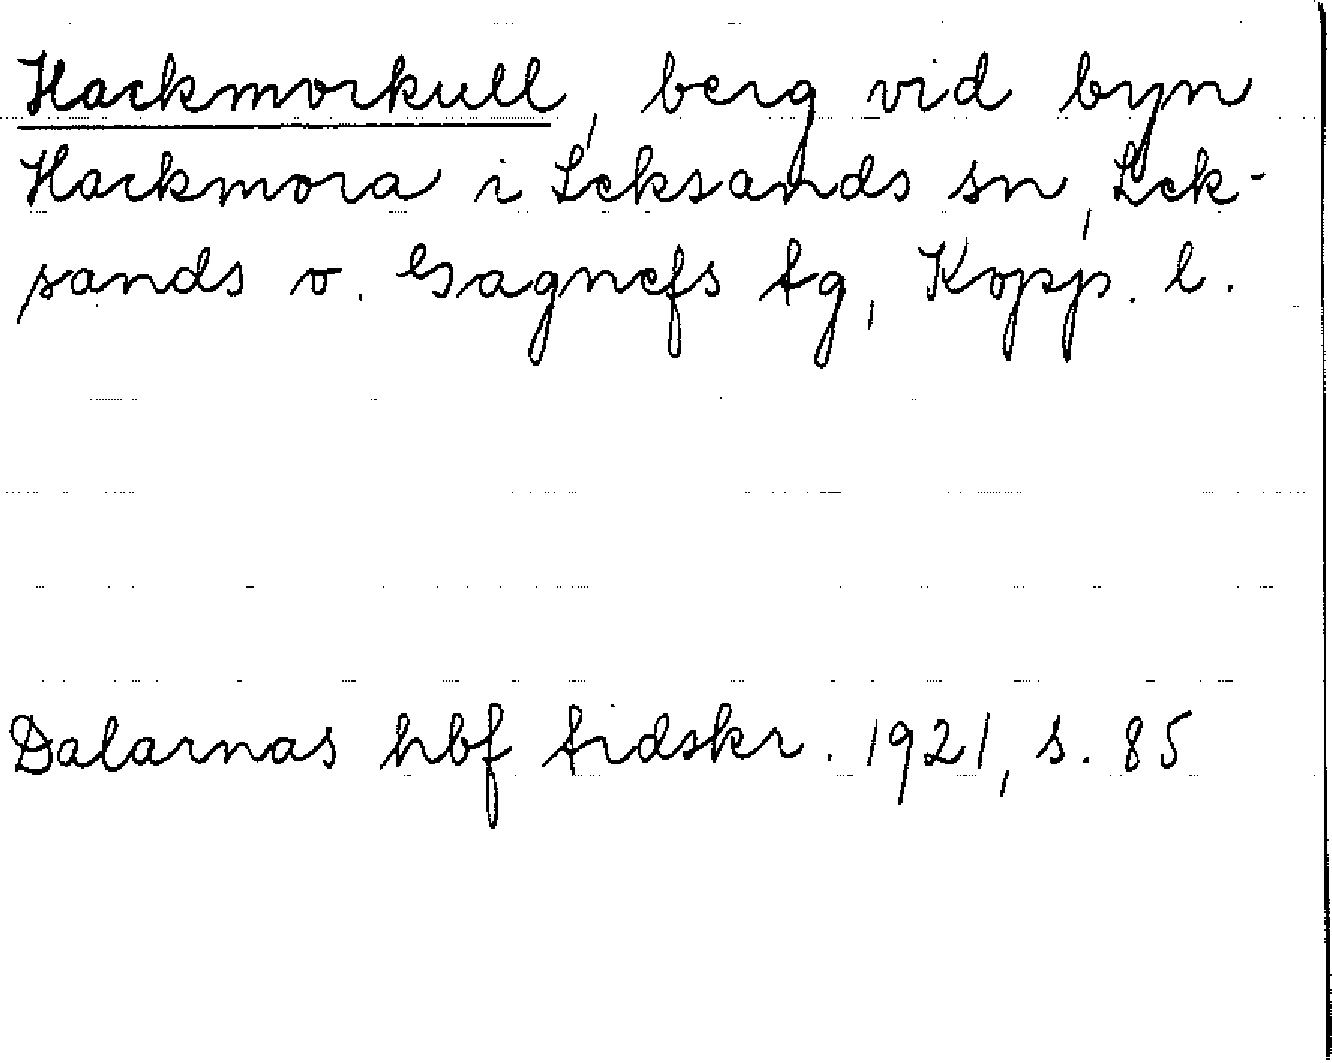 Hackmorkull, berg vid byn
Hackmora i Leksands sn, Lek-
sands o. Gagnefs tg, Kopp. l.
Dalarnas hbf tidskr. 1921, s. 85